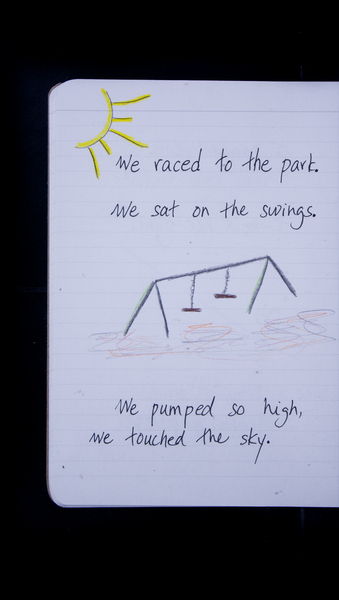 We raced to the park.
We sat on the swings.
We pumped so high,
we touched the sky.